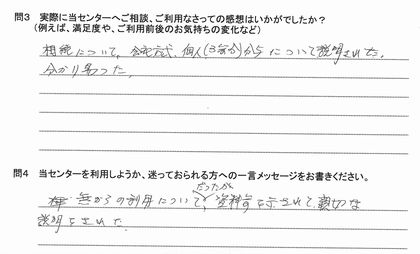 問3 実際に当センターへご相談、ご利用なさっての感想はいかがでしたか？
（例えば、満足度や、ご利用前後のお気持ちの変化など）
相続について、 個人 について説明された。
分かり易かった。
問4 当センターを利用しようか、迷っておられる方への一言メッセージをお書きください。
だったが
無 からの利用について、資料等を示されて、親切な
説明をされた。